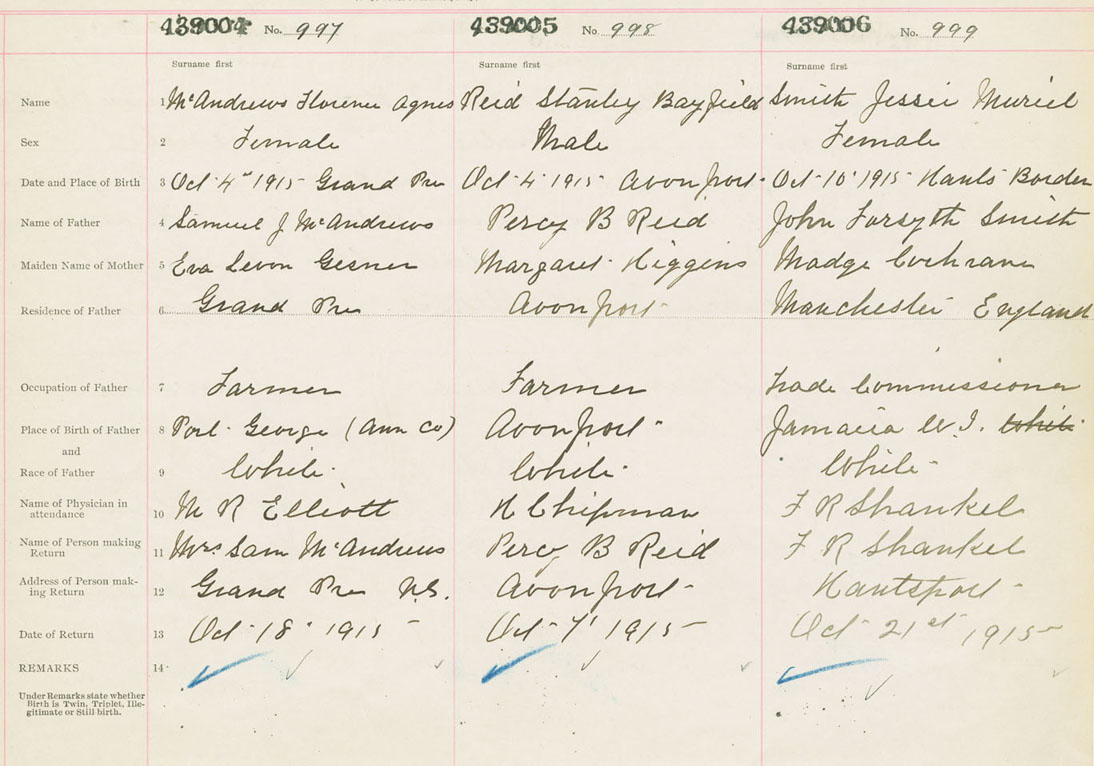 439004 No. 997 439005 No. 998 439006 No. 999
Surname first Surname first Surname first
Name 1 McAndrews Florence Agnes Reid Stanley Bayfield Smith Jessie Muriel
Sex 2 Female Male Female
Date and Place of Birth 3 Oct 4" 1915 Grand Pre Oct 4' 1915 Avonport Oct 10' 1915 Hants Border
Name of Father 4 Samuel J McAndrews Percy B Reid John Forsyth Smith
Maiden Name of Mother 5 Eva Gesner Margaret Higgins Madge Cochrane
Residence of Father 6 Grand Pre Avonport Manchester England
Occupation of Father 7 Farmer Farmer Trade Commissioner
Place of Birth of Father 8 Port George (Ann Co) Avonport Jamaica W.I. White
and
Race of Father 9 White White White
Name of Physician in
attendance 10 M R Elliott H Chipman F R Shankel
Name of Person making
Return 11 Mrs Sam McAndrews Percy B Reid F R Shankel
Address of Person mak-
ing Return 12 Grand Pre N.S. Avonport Hantsport
Date of Return 13 Oct 18" 1915 Oct 7' 1915 Oct 21st 1915
REMARKS 14
Under Remarks state whether
Birth is Twin, Triplet, Ille-
gitimate or Still birth.